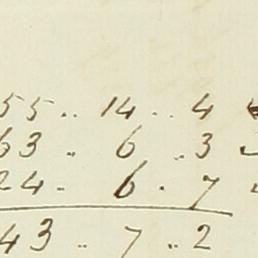 55 .. 14 .. 4
63 .. 6 .. 3
24 . 6 . 7
43 .. 7 .. 2